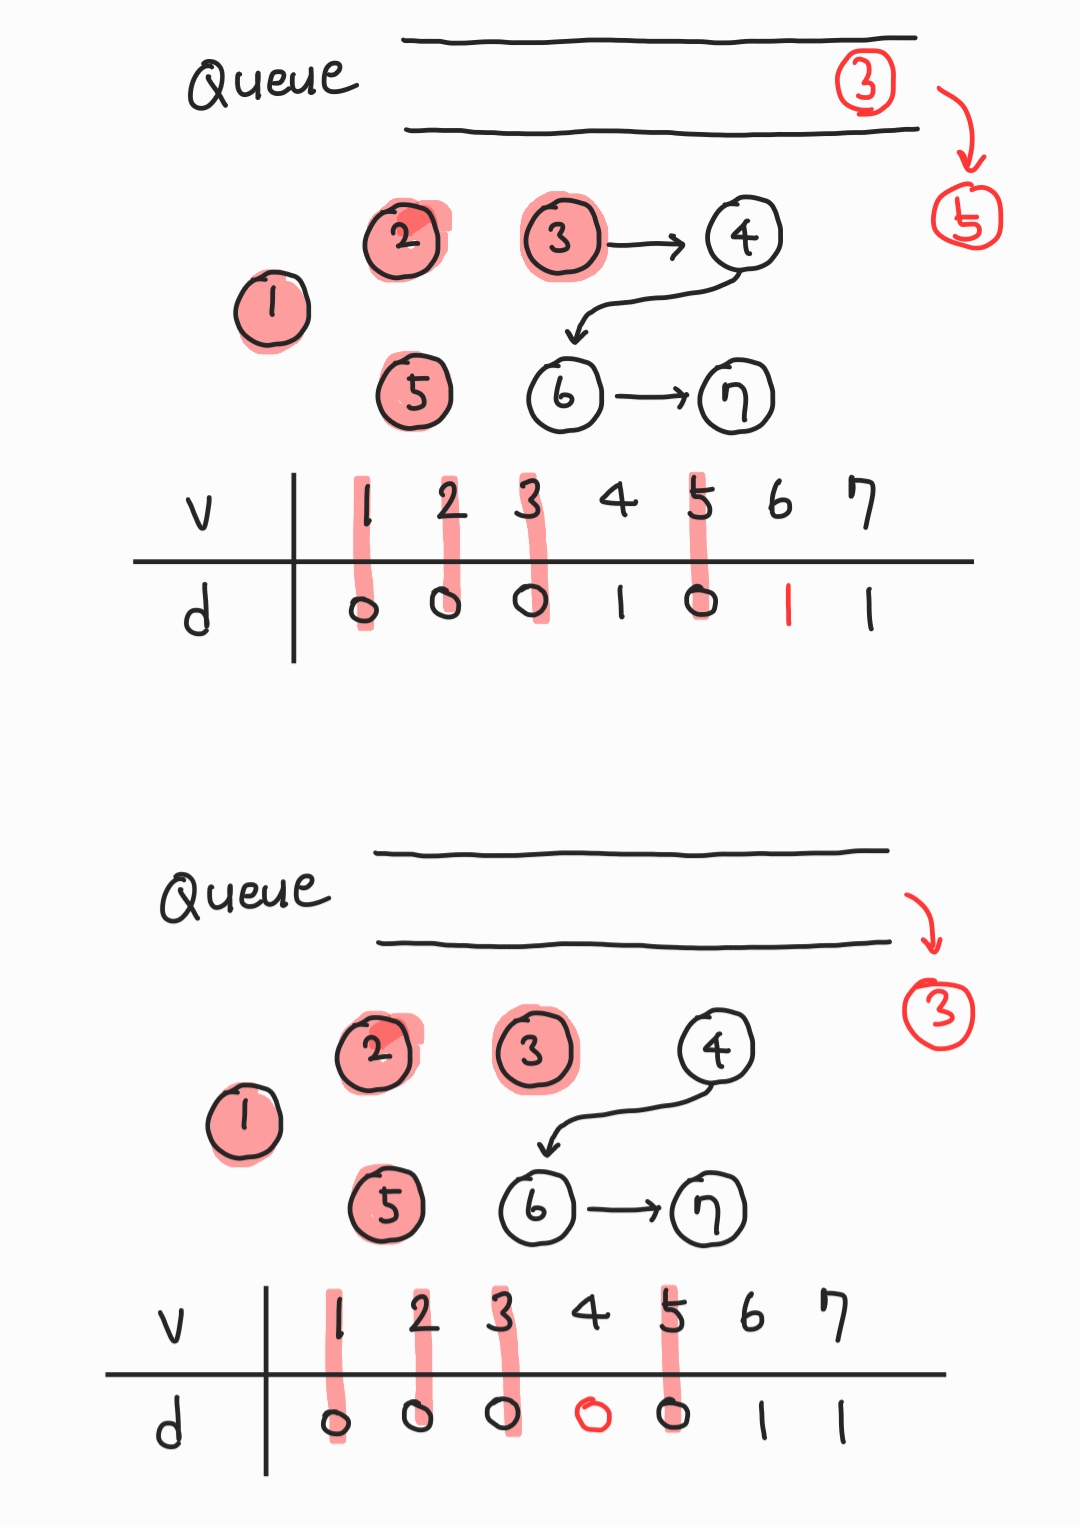 Queue 3
5
2 3 4
1
5 6 7
V 1 2 3 4 5 6 7
d 0 0 0 1 0 1 1
Queue
3
2 3 4
1
5 6 7
V 1 2 3 4 5 6 7
d 0 0 0 0 0 1 1